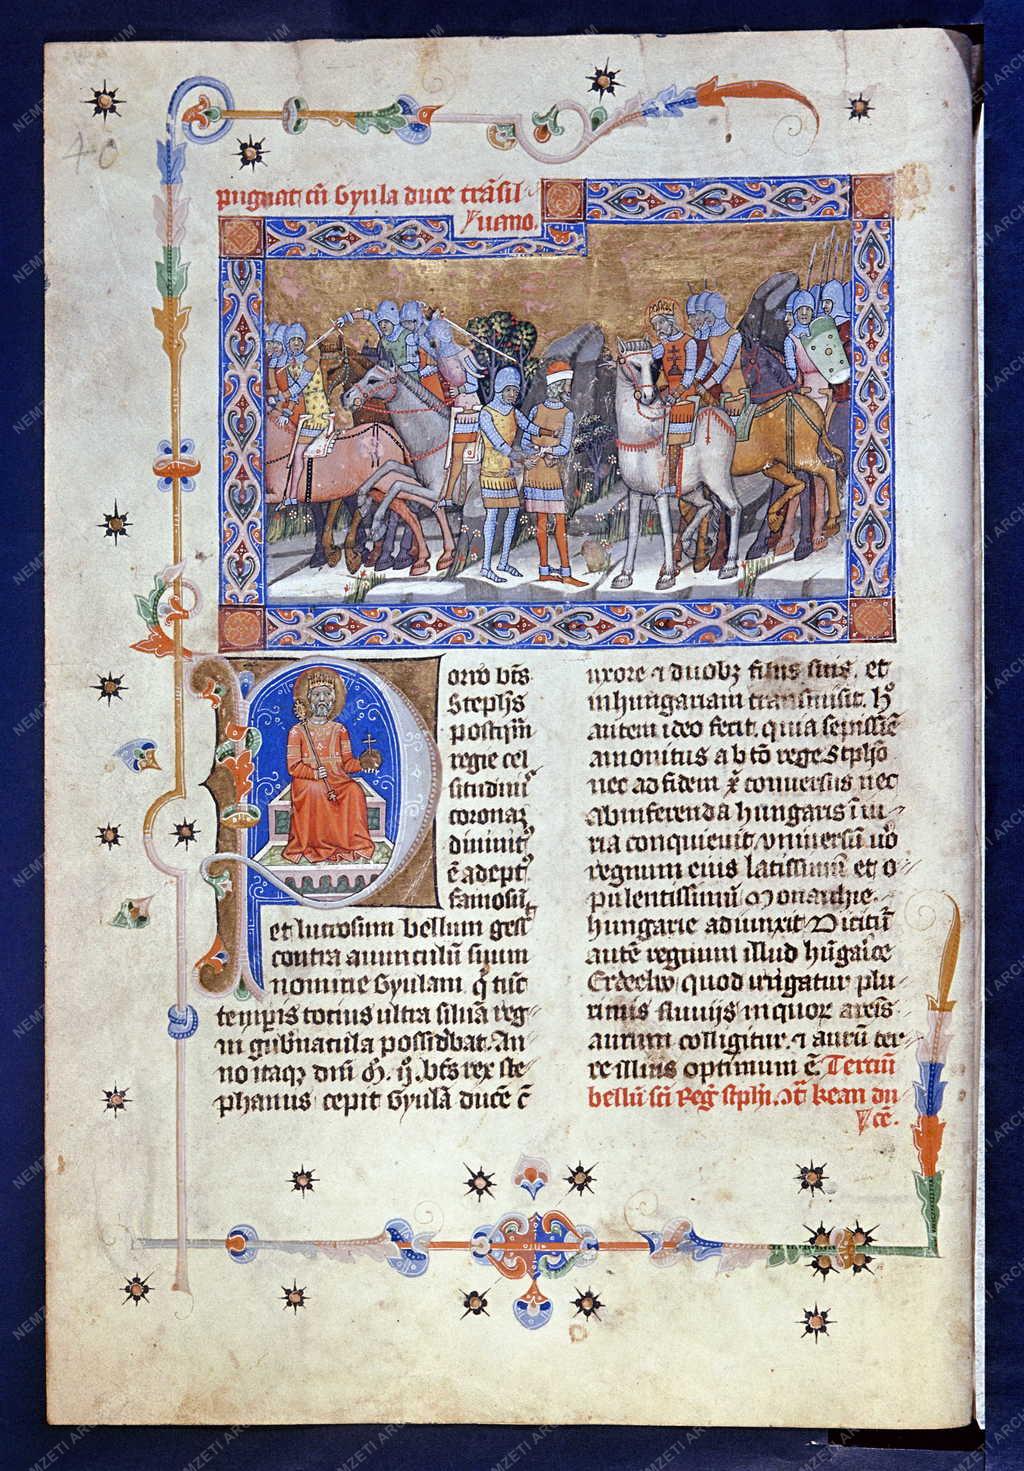 pugnat cū Gyula duce trāsil
uano.
Porro bt̄s
Steph̄s
postq̄m
regie cel
situdinis
coronaz
diuinit9
ē adept9
famosū
et lucrosum bellum gessit
contra auunculū suum
nomine Gyulam, q̄ tūc
temp̄is totius ultra siluā reg
ni gub̄nacula possidebat. An
no itaqz dn̄i M. ij. bt̄s rex ste
phanus cepit Gyulā ducē c̄
uxore ⁊ duobz filiis suis, et
in hungariam transmisit. h9
autem ideo fecit, quia sepissīe
amonitus a b tō rege Stph̄o
nec ad fidem xp̄i conuersus nec
ab inferenda hungaris īiu
ria conquieuit, vniuersū uo
regnum eius latissimū et o
pulentissimū Monarchie
hungarie adiunxit. Dicitur
autē regnum illud hūgarice
Erdeelw, quod irrigatur plu
rimis fluuijs in quor arenis
aurum colligitur, ⁊ aurū ter
re illius optimum ē. Tertiū
bellū sc̄i Reg Stph̄i. ↄt̄ kean du
cē.
40